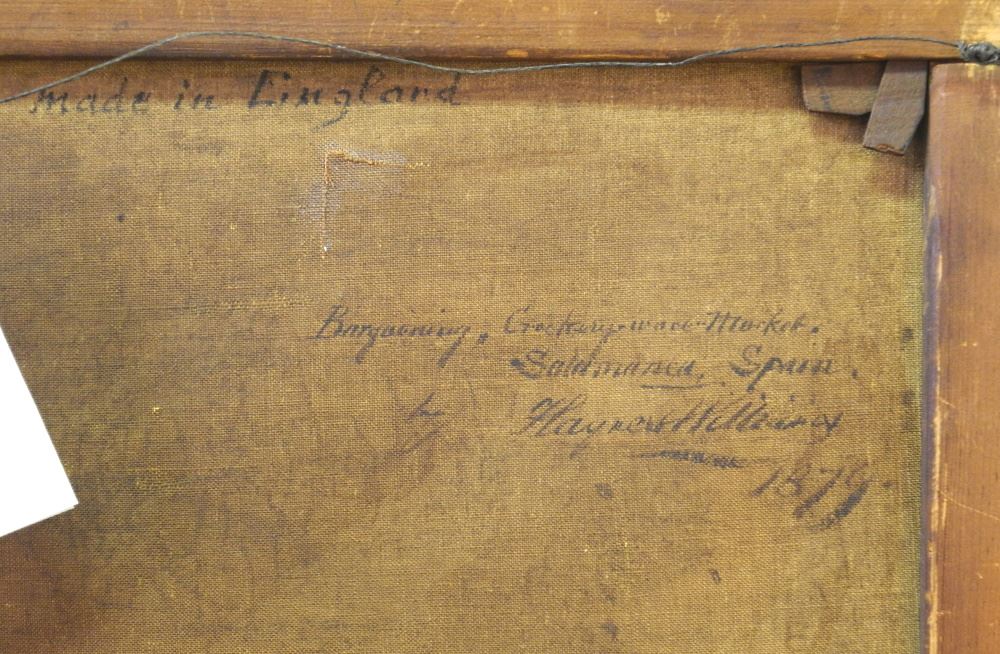 made in England
Bargaining, Crockeryware Market.
Salamanca, Spain.
by Haynes Williams
1879.